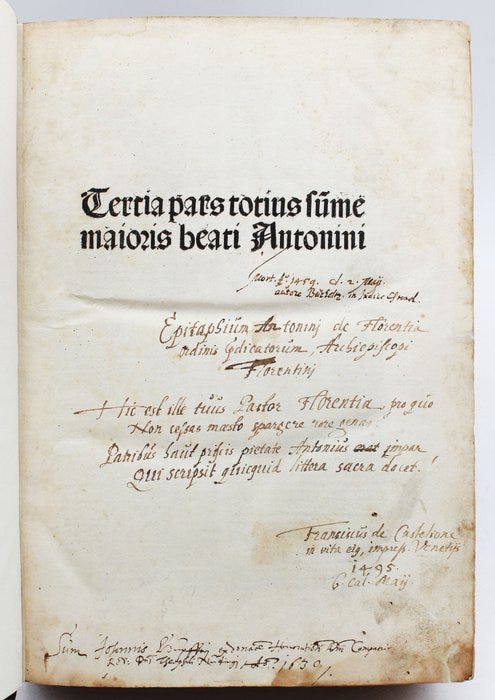 Tertia pars totius sūme
maioris beati Antonini
Mort. Aº. 1459. d. 2. Maij.
autore in Indice
Epitaphium Antoninj de Florentia
ordinis p̄dicatorum, Archiepiscopi
Florentinj
Hic est ille tuus Pastor Florentia, pro quo
Non cessas mæsto spargere rore genas.
Patribus haut priscis pietate Antonius erat impar
Qui scripsit quicquid littera sacra docet.
Franciscus de Castelione
in vita eiꝰ, impress. Venetijs
1495.
6 Cal. Maij
Sum Joannis
1630